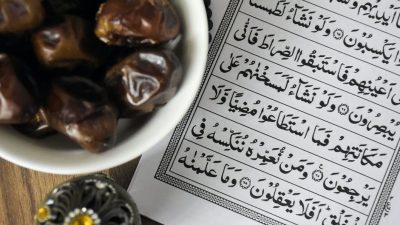 ايديهم
يَكْسِبُوْنَ ۝ وَلَوْ نَشَآءُ لَطَمَسْ
اَعْيُنِهِمْ فَاسْتَبَقُوا الصِّرَاطَ فَاَنّٰى
يُبْصِرُوْنَ ۝ وَلَوْ نَشَآءُ لَمَسَخْنٰهُمْ عَلٰى
مَكَانَتِهِمْ فَمَا اسْتَطَاعُوْا مُضِيًّا وَّلَا
يَرْجِعُوْنَ ۝ وَمَنْ نُّعَمِّرْهُ نُنَكِّسْهُ فِى
الْخَلْقِ ؕ اَفَلَا يَعْقِلُوْنَ ۝ وَمَا عَلَّمْنٰهُ